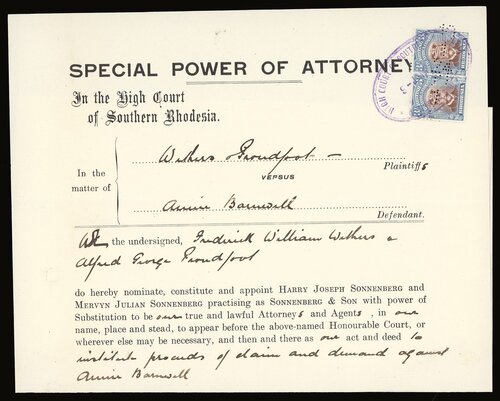 SPECIAL POWER OF ATTORNEY
In the High Court
of Southern Rhodesia.
Withers Proudfoot —
Plaintiffs
In the
matter of
VERSUS
Annie Barnwell
Defendant.
We the undersigned, Frederick William Withers &
Alfred George Proudfoot
do hereby nominate, constitute and appoint HARRY JOSEPH SONNENBERG and
MERVYN JULIAN SONNENBERG practising as SONNENBERG & SON with power of
Substitution to be our true and lawful Attorneys and Agents, in our
name, place and stead, to appear before the above-named Honourable Court, or
wherever else may be necessary, and then and there as our act and deed to
institute proceeds of claim and demand against
Annie Barnwell
HIGH COURT SOUTH